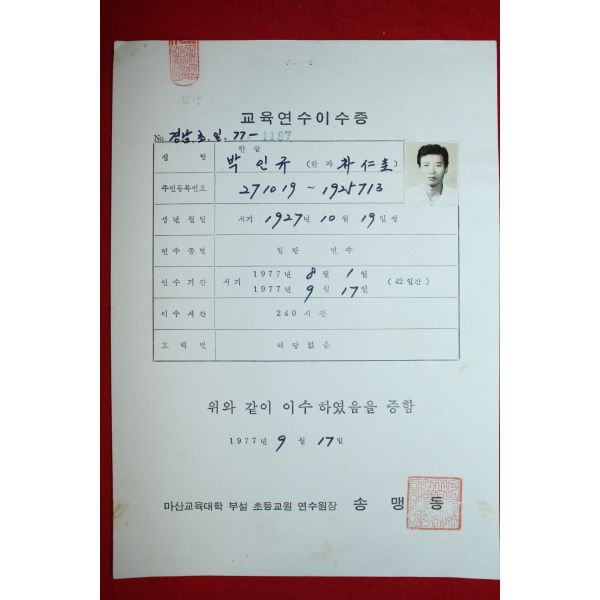 교육연수이수증
No. 경남.초.일.77-1187
성 명 한글 박인규 (한자 朴仁圭)
주민등록번호 271019~1925713
생년월일 서기 1927년 10월 19일생
연수종별 일반 연수
연수기간 서기 1977년 8월 1일
1977년 9월 17일 (42일간)
이수시간 240시간
호력번 해당없음
위와 같이 이수하였음을 증함
1977년 9월 17일
마산교육대학 부설 초등교원 연수원장 송맹동